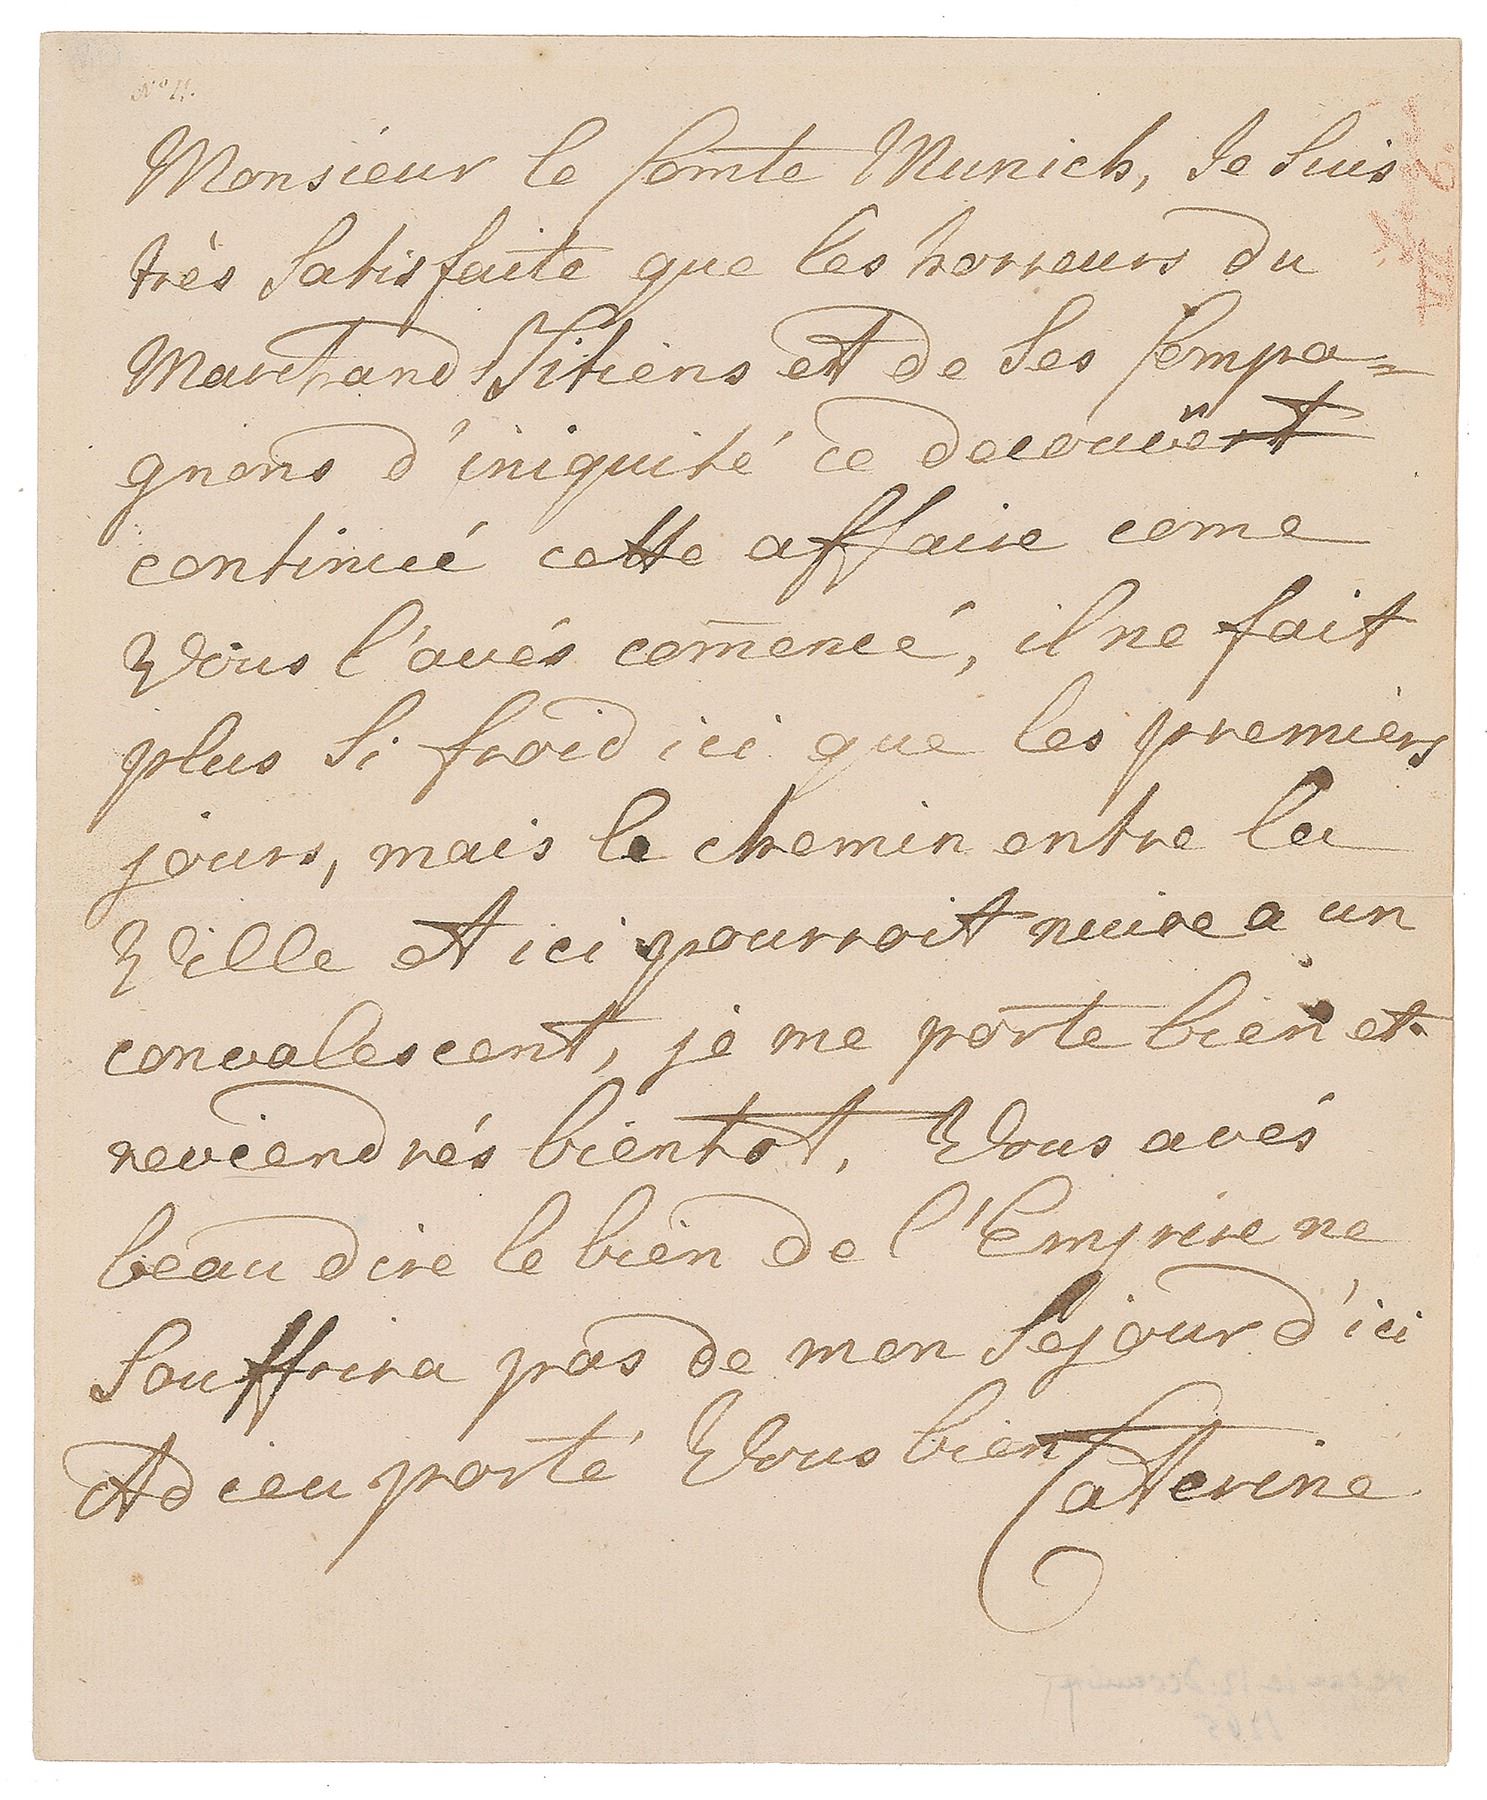 No 11.
Monsieur le Comte Munich, Je Suis
très Satisfaite que les horreurs du
Marchand Sitiens et de Ses Compa=
gnons d'iniquité ce decouvrent
continué cette affaire come
Vous l'avés com̄encé, il ne fait
plus Si froid ici que les premiers
jours, mais le chemin entre la
Ville et ici pourroit nuire a un
convalescent, je me porte bien et
reviendrés bientot, Vous avés
beau dire le bien de l'Empire ne
Souffrira pas de mon Sejour d'ici
Adieu porté Vous bien
Caterine